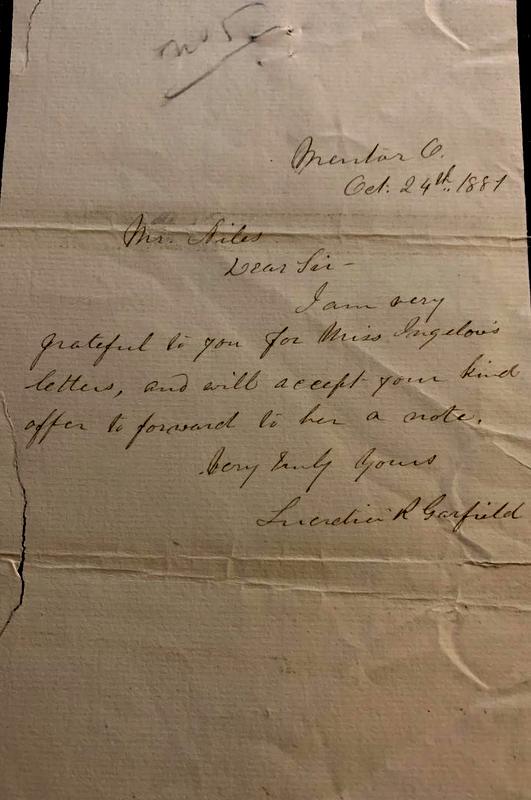 No 5
Mentor O.
Oct. 24th. 1881
Mr. Niles
Dear Sir -
I am very
grateful to you for Miss Ingelow's
letters, and will accept your kind
offer to forward to her a note.
Very Truly Yours
Lucretia R Garfield